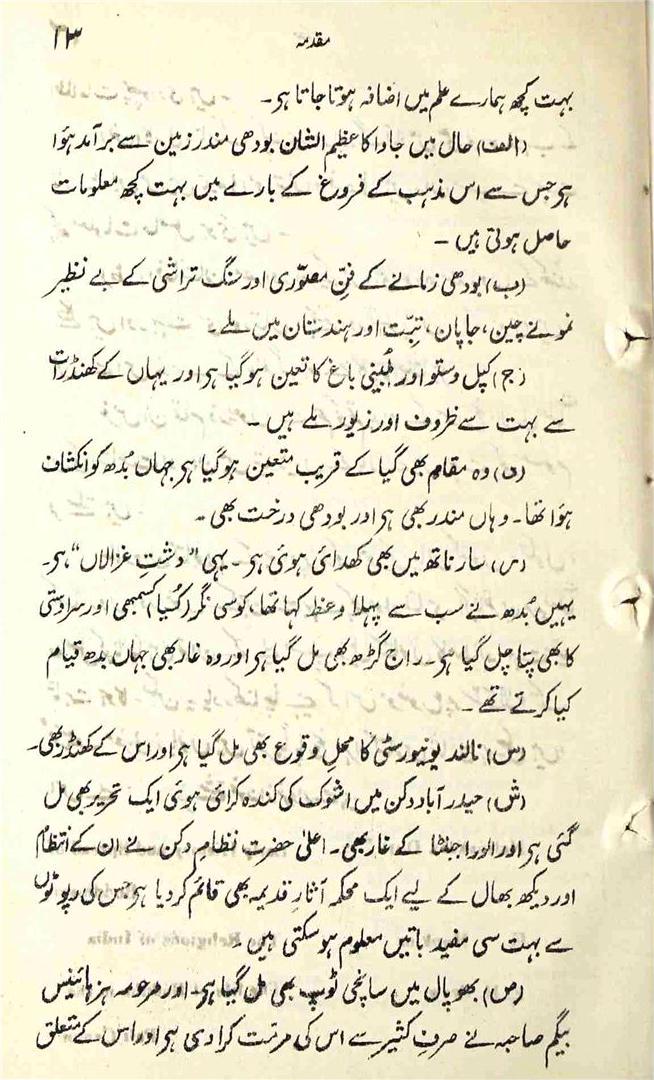 مقدمہ ۱۳
بہت کچھ ہمارے علم میں اضافہ ہوتا جاتا ہی۔
(الف) حال میں جاوا کا عظیم الشان بودھی مندر زمین سے برآمد ہؤا
ہی جس سے اس مذہب کے فروغ کے بارے میں بہت کچھ معلومات
حاصل ہوتی ہیں۔
(ب) بودھی زمانے کے فنِّ مصوّری اور سنگ تراشی کے بے نظیر
نمونے چین، جاپان، تبّت اور ہندستان میں ملے۔
(ج) کپل وستو اور لُمبینی باغ کا تعین ہوگیا ہی اور یہاں کے کھنڈرات
سے بہت سے ظروف اور زیور ملے ہیں۔
(د) وہ مقام بھی گیا کے قریب متعین ہوگیا ہی جہاں بُدھ کو انکشاف
ہؤا تھا۔ وہاں مندر بھی ہی اور بودھی درخت بھی۔
(ر) سارناتھ میں بھی کھدائی ہوئی ہی۔ یہی "دشتِ غزالاں" ہی۔
یہیں بُدھ نے سب سے پہلا وعظ کہا تھا، کوسی نگر (کسُیا) کسمبھی اور سراوستی
کا بھی پتا چل گیا ہی۔ راج گڑھ بھی مل گیا ہی اور وہ غار بھی جہاں بدھ قیام
کیا کرتے تھے۔
(س) نالند یونیورسٹی کا محلِ وقوع بھی مل گیا ہی اور اس کے کھنڈر بھی۔
(ش) حیدرآباد دکن میں اشوک کی کندہ کرائی ہوئی ایک تحریر بھی مل
گئی ہی اور الورا اجنٹا کے غار بھی۔ اعلیٰ حضرت نظامِ دکن نے ان کے انتظام
اور دیکھ بھال کے لیے ایک محکمہ آثارِ قدیمہ بھی قائم کردیا ہی جس کی رپوٹوں
سے بہت سی مفید باتیں معلوم ہوسکتی ہیں۔
(ص) بھوپال میں سانچی ٹوپ بھی مل گیا ہی۔ اور مرحومہ ہزہائینس
بیگم صاحبہ نے صرفِ کثیر سے اس کی مرمّت کرادی ہی اور اس کے متعلق